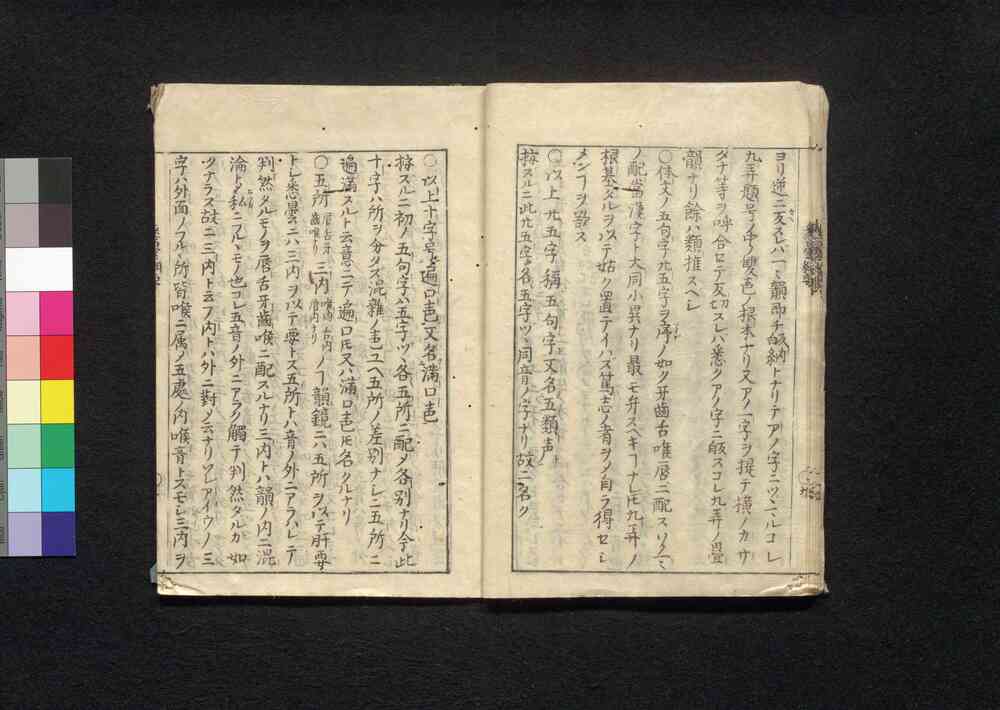 ヨリ逆ニ反スレバ一々韻即チ皈納トナリテアノ字ニツヾマルコレ
九弄題号ノ中ノ雙声ノ根本ナリ又アノ一字ヲ提テ横ノカサ
タナ等ヲ呼合セテ反切スレバ悉クアノ字ニ皈スコレ九弄ノ畳
韻ナリ餘ハ類推スヘシ
〇体文ノ五句字廾五字ヲ序ノ如ク牙齒舌喉唇ニ配スルコ
ノ配當漢字ト大同小異ナリ最モ弁スヘキコナレ𪜈九弄ノ
根基タルヲ以テ姑ク置テイハズ篤志ノ者ヲノ自ラ得セシ
メンコヲ欲ス
〇以上廾五字稱五句字又名五類声
按スルニ此廾五字各五字ツヽ同音ノ字ナリ故ニ名ク
〇以上十字号遍口声又名満口声
按スルニ初ノ五句字ハ五字ツヽ各五所ニ配メ各別ナリ今此
十字ハ所ヲ分タズ混雜ノ声ユヘ五所ノ差別ナシ五所ニ
遍滿スルト云意ニテ遍口𪜈又ハ満口声𪜈名クルナリ
〇五所 唇舌牙齒喉 三内 喉内舌内唇内ナリ ノコ韻鏡ニハ五所ヲ以テ肝要
トシ悉曇ニハ三内ヲ以テ要トス五所トハ音ノ外ニアラハレテ
判然タルモノヲ唇舌牙齒喉ニ配スルナリ三内トハ韻ノ内ニ混
淪ト私ニフルヽモノ也コレ五音ノ外ニアラハ觸テ判然タルカ如
クナラズ故ニ三内ト云フ内トハ外ニ對メ云ナリソレアイウノ三
字ハ外面ノフルヽ所皆喉ニ属ノ五處ノ内喉音トスモシ三内ヲ